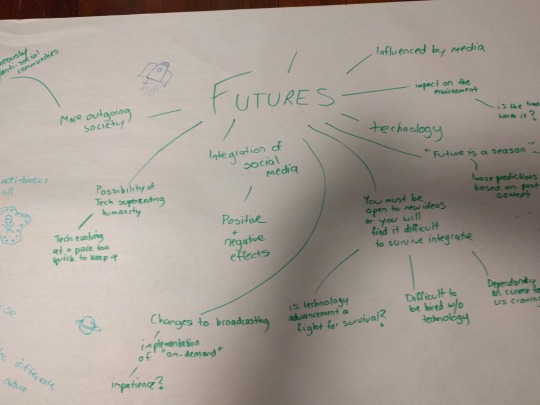 anti-social
communities
More outgoing
society
FUTURES
Influenced by media
impact on the
environment
is the
it?
technology
"Future is a season"
loose predictions
based on past
context
Integration of
social
media
Positive
+
negative
effects
Possibility of
Tech superseding
humanity
Tech evolving
at a pace too
quick to keep up
You must be
open to new ideas
or you will
find it difficult
to survive integrate
is technology
advancement a
fight for survival?
Difficult to
be hired w/o
technology
on current
us
Changes to broadcasting
implementation
of "on-demand"
impatience?
anti-biotics
all
difference